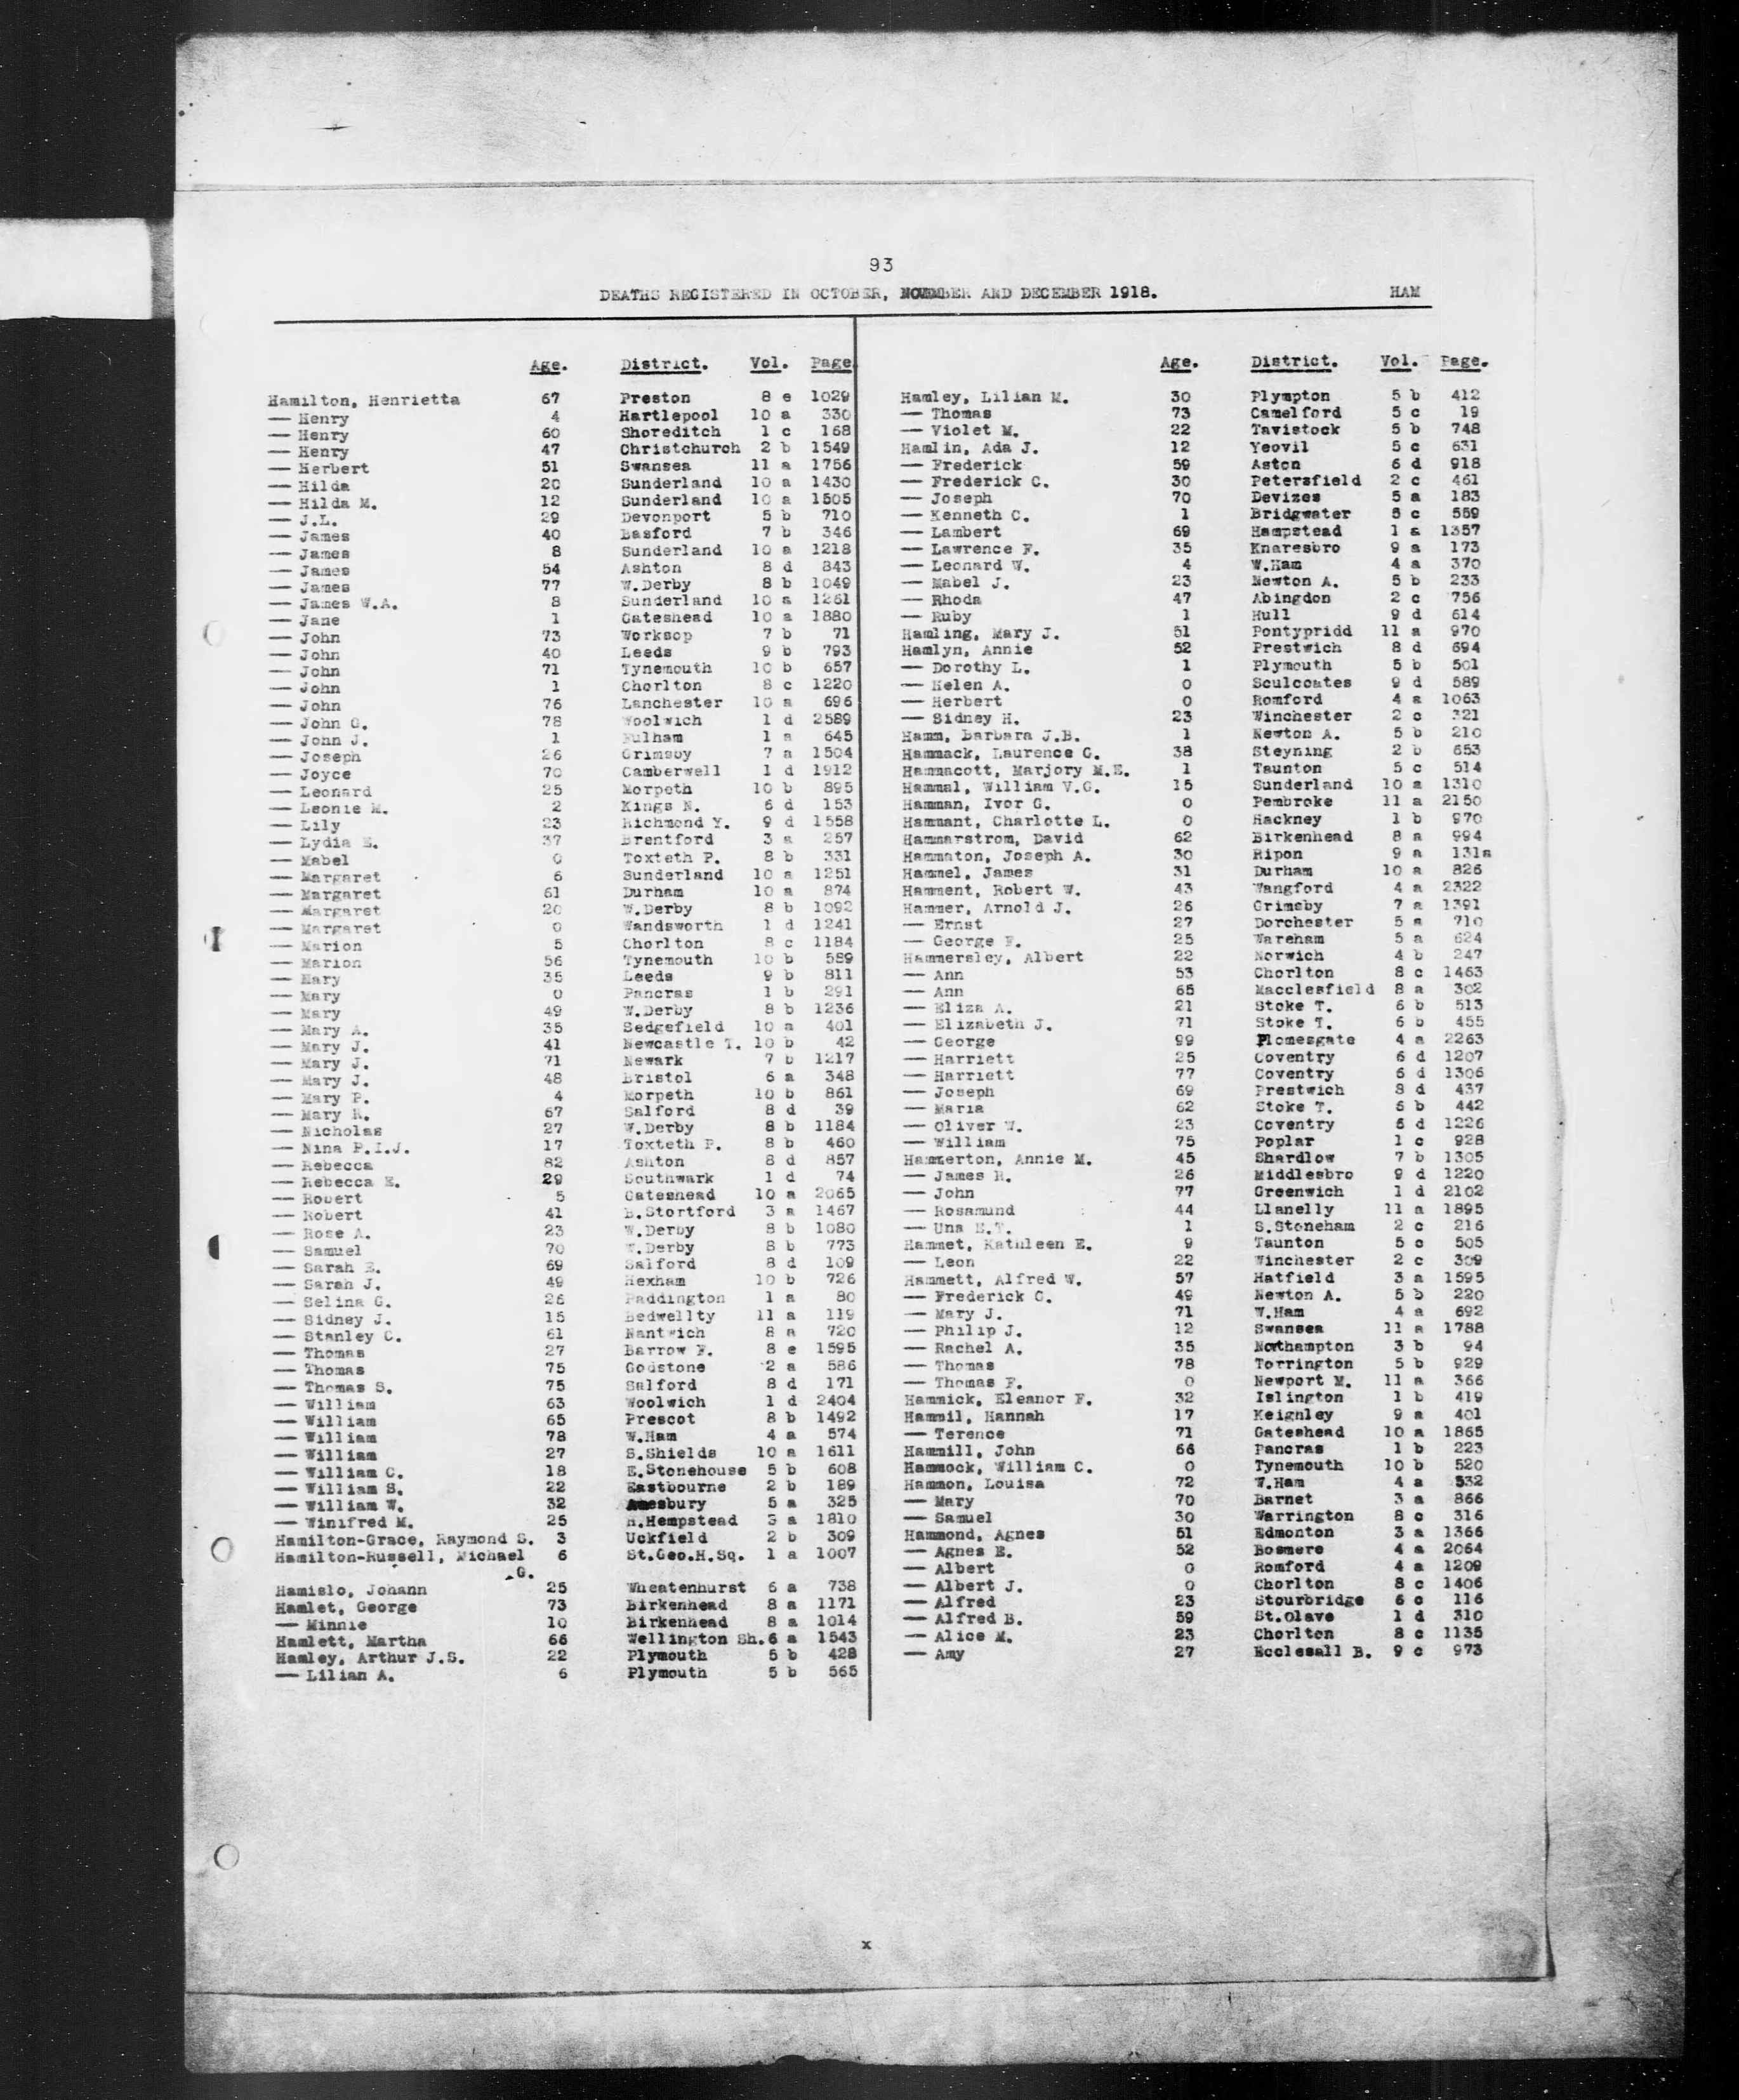 93
DEATHS REGISTERED IN OCTOBER, NOVEMBER AND DECEMBER 1918. HAM
Age. District. Vol. Page
Hamilton, Henrietta 67 Preston 8 e 1029
— Henry 4 Hartlepool 10 a 330
— Henry 60 Shoreditch 1 c 168
— Henry 47 Christchurch 2 b 1549
— Herbert 51 Swansea 11 a 1756
— Hilda 20 Sunderland 10 a 1430
— Hilda M. 12 Sunderland 10 a 1505
— J.L. 29 Devonport 5 b 710
— James 40 Basford 7 b 346
— James 8 Sunderland 10 a 1218
— James 54 Ashton 8 d 843
— James 77 W.Derby 8 b 1049
— James W.A. 8 Sunderland 10 a 1261
— Jane 1 Gateshead 10 a 1880
— John 73 Worksop 7 b 71
— John 40 Leeds 9 b 793
— John 71 Tynemouth 10 b 657
— John 1 Chorlton 8 c 1220
— John 76 Lanchester 10 a 696
— John G. 78 Woolwich 1 d 2589
— John J. 1 Fulham 1 a 645
— Joseph 26 Grimsby 7 a 1504
— Joyce 70 Camberwell 1 d 1912
— Leonard 25 Morpeth 10 b 895
— Leonie M. 2 Kings N. 6 d 153
— Lily 23 Richmond Y. 9 d 1558
— Lydia E. 37 Brentford 3 a 257
— Mabel 0 Toxteth P. 8 b 331
— Margaret 6 Sunderland 10 a 1251
— Margaret 61 Durham 10 a 874
— Margaret 20 W.Derby 8 b 1092
— Margaret 0 Wandsworth 1 d 1241
— Marion 5 Chorlton 8 c 1184
— Marion 56 Tynemouth 10 b 589
— Mary 35 Leeds 9 b 811
— Mary 0 Pancras 1 b 291
— Mary 49 W.Derby 8 b 1236
— Mary A. 35 Sedgefield 10 a 401
— Mary J. 41 Newcastle T. 10 b 42
— Mary J. 71 Newark 7 b 1217
— Mary J. 48 Bristol 6 a 348
— Mary P. 4 Morpeth 10 b 861
— Mary R. 67 Salford 8 d 39
— Nicholas 27 W.Derby 8 b 1184
— Nina P.I.J. 17 Toxteth P. 8 b 460
— Rebecca 82 Ashton 8 d 857
— Rebecca E. 29 Southwark 1 d 74
— Robert 5 Gateshead 10 a 2065
— Robert 41 B.Stortford 3 a 1467
— Rose A. 23 W.Derby 8 b 1080
— Samuel 70 W.Derby 8 b 773
— Sarah E. 69 Salford 8 d 109
— Sarah J. 49 Hexham 10 b 726
— Selina G. 26 Paddington 1 a 80
— Sidney J. 15 Bedwellty 11 a 119
— Stanley C. 61 Nantwich 8 a 720
— Thomas 27 Barrow F. 8 e 1595
— Thomas 75 Godstone 2 a 586
— Thomas S. 75 Salford 8 d 171
— William 63 Woolwich 1 d 2404
— William 65 Prescot 8 b 1492
— William 78 W.Ham 4 a 574
— William 27 S.Shields 10 a 1611
— William C. 18 E.Stonehouse 5 b 608
— William S. 22 Eastbourne 2 b 189
— William W. 32 Amesbury 5 a 325
— Winifred M. 25 H.Hempstead 3 a 1810
Hamilton-Grace, Raymond S. 3 Uckfield 2 b 309
Hamilton-Russell, Michael 6 St.Geo.H.Sq. 1 a 1007
G.
Hamislo, Johann 25 Wheatenhurst 6 a 738
Hamlet, George 73 Birkenhead 8 a 1171
— Minnie 10 Birkenhead 8 a 1014
Hamlett, Martha 66 Wellington Sh. 6 a 1543
Hamley, Arthur J.S. 22 Plymouth 5 b 428
— Lilian A. 6 Plymouth 5 b 565
Age. District. Vol. Page.
Hamley, Lilian M. 30 Plympton 5 b 412
— Thomas 73 Camelford 5 c 19
— Violet M. 22 Tavistock 5 b 748
Hamlin, Ada J. 12 Yeovil 5 c 631
— Frederick 59 Aston 6 d 918
— Frederick C. 30 Petersfield 2 c 461
— Joseph 70 Devizes 5 a 183
— Kenneth C. 1 Bridgwater 5 c 559
— Lambert 69 Hampstead 1 a 1357
— Lawrence F. 35 Knaresbro 9 a 173
— Leonard W. 4 W.Ham 4 a 370
— Mabel J. 23 Newton A. 5 b 233
— Rhoda 47 Abingdon 2 c 756
— Ruby 1 Hull 9 d 614
Hamling, Mary J. 51 Pontypridd 11 a 970
Hamlyn, Annie 52 Prestwich 8 d 694
— Dorothy L. 1 Plymouth 5 b 501
— Helen A. 0 Sculcoates 9 d 589
— Herbert 0 Romford 4 a 1063
— Sidney H. 23 Winchester 2 c 321
Hamm, Barbara J.B. 1 Newton A. 5 b 210
Hammack, Laurence G. 38 Steyning 2 b 653
Hammacott, Marjory M.E. 1 Taunton 5 c 514
Hammal, William V.G. 15 Sunderland 10 a 1310
Hamman, Ivor G. 0 Pembroke 11 a 2150
Hammant, Charlotte L. 0 Hackney 1 b 970
Hammarstrom, David 62 Birkenhead 8 a 994
Hammaton, Joseph A. 30 Ripon 9 a 131a
Hammel, James 31 Durham 10 a 826
Hamment, Robert W. 43 Wangford 4 a 2322
Hammer, Arnold J. 26 Grimsby 7 a 1391
— Ernst 27 Dorchester 5 a 710
— George F. 25 Wareham 5 a 624
Hammersley, Albert 22 Norwich 4 b 247
— Ann 53 Chorlton 8 c 1463
— Ann 65 Macclesfield 8 a 302
— Eliza A. 21 Stoke T. 6 b 513
— Elizabeth J. 71 Stoke T. 6 b 455
— George 99 Plomesgate 4 a 2263
— Harriett 25 Coventry 6 d 1207
— Harriett 77 Coventry 6 d 1306
— Joseph 69 Prestwich 8 d 437
— Maria 62 Stoke T. 6 b 442
— Oliver W. 23 Coventry 6 d 1226
— William 75 Poplar 1 c 928
Hammerton, Annie M. 45 Shardlow 7 b 1305
— James R. 26 Middlesbro 9 d 1220
— John 77 Greenwich 1 d 2102
— Rosamund 44 Llanelly 11 a 1895
— Una E.T. 1 S.Stoneham 2 c 216
Hammet, Kathleen E. 9 Taunton 5 c 505
— Leon 22 Winchester 2 c 309
Hammett, Alfred W. 57 Hatfield 3 a 1595
— Frederick C. 49 Newton A. 5 b 220
— Mary J. 71 W.Ham 4 a 692
— Philip J. 12 Swansea 11 a 1788
— Rachel A. 35 Northampton 3 b 94
— Thomas 78 Torrington 5 b 929
— Thomas F. 0 Newport M. 11 a 366
Hammick, Eleanor F. 32 Islington 1 b 419
Hammil, Hannah 17 Keighley 9 a 401
— Terence 71 Gateshead 10 a 1865
Hammill, John 66 Pancras 1 b 223
Hammock, William C. 0 Tynemouth 10 b 520
Hammon, Louisa 72 W.Ham 4 a 532
— Mary 70 Barnet 3 a 866
— Samuel 30 Warrington 8 c 316
Hammond, Agnes 51 Edmonton 3 a 1366
— Agnes E. 52 Bosmere 4 a 2064
— Albert 0 Romford 4 a 1209
— Albert J. 0 Chorlton 8 c 1406
— Alfred 23 Stourbridge 6 c 116
— Alfred B. 59 St.Olave 1 d 310
— Alice M. 23 Chorlton 8 c 1135
— Amy 27 Ecclesall B. 9 c 973
x